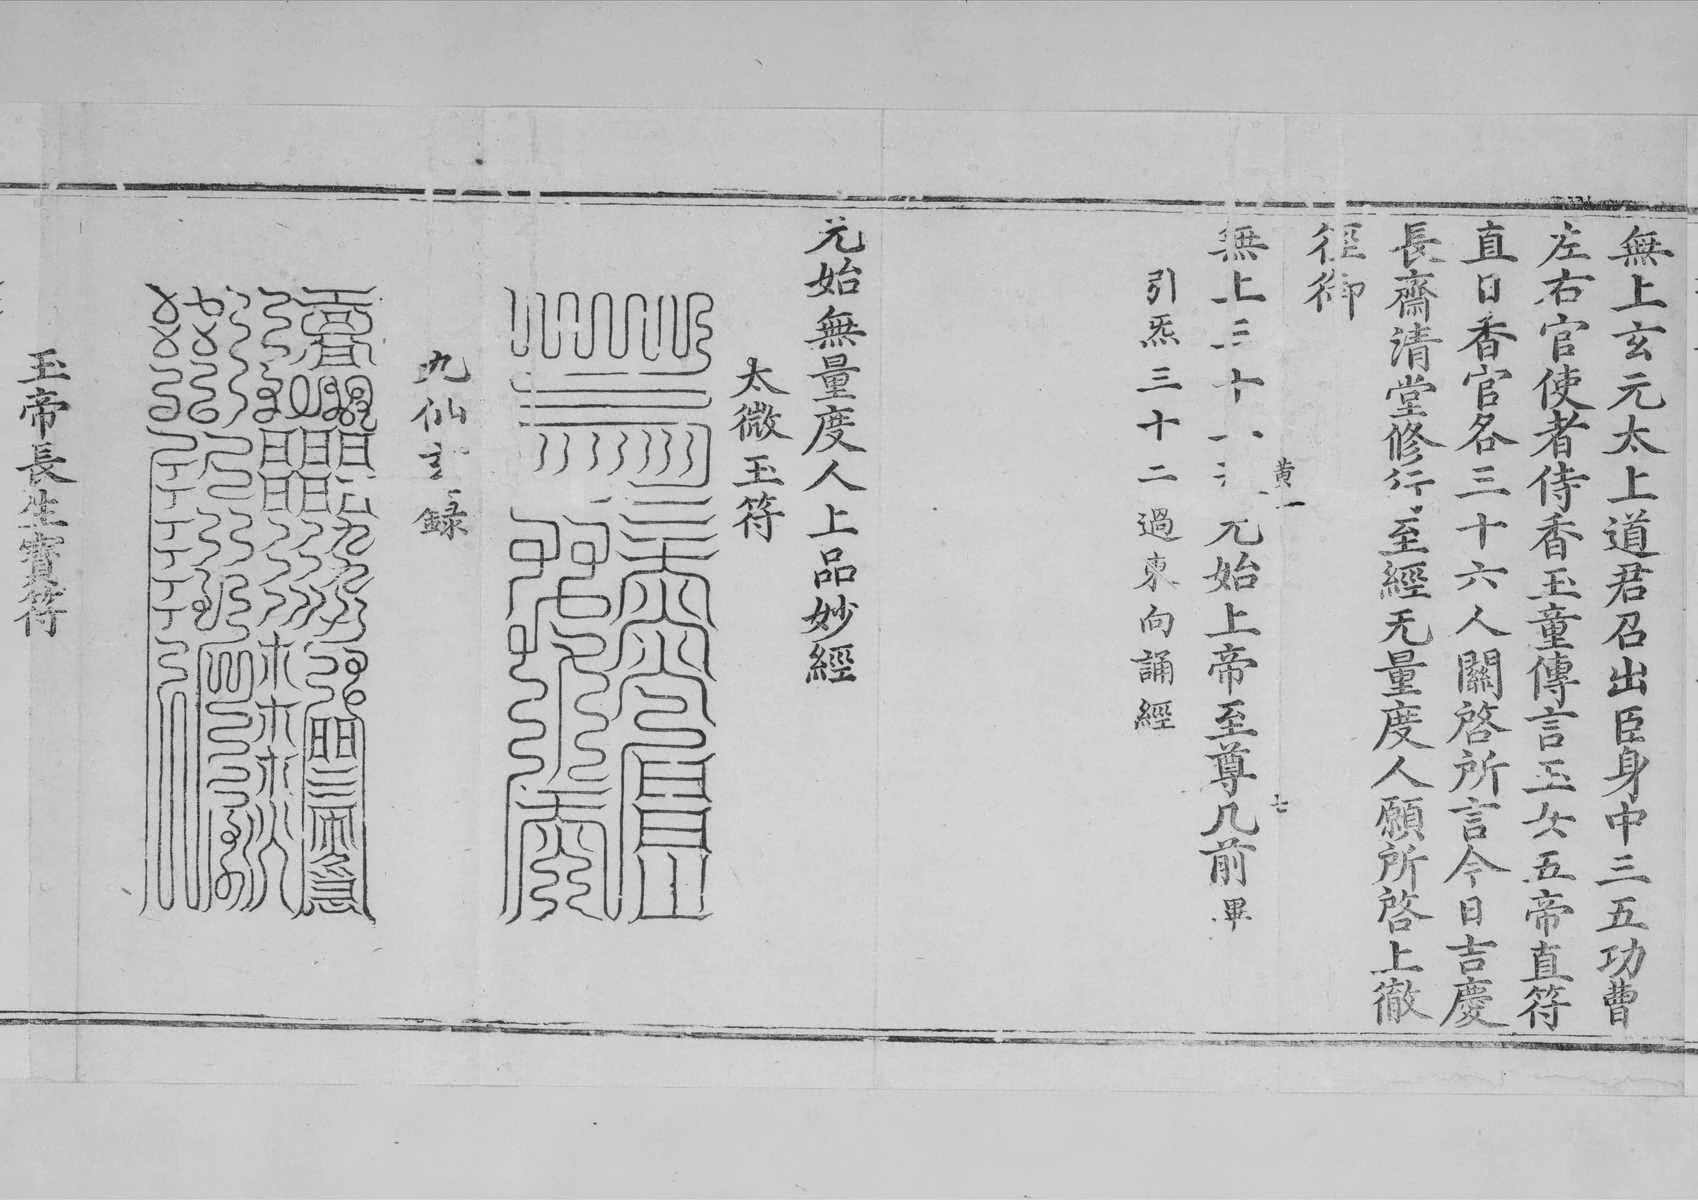 無上玄元太上道君召出臣身中三五功曹
左右官使者侍香玉童傳言玉女五帝直符
直日香官各三十六人關啓所言今日吉慶
長齋清堂修行至經无量度人願所啓上徹
徑御
黃一 七
無上三十 元始上帝至尊几前畢
引炁三十二過東向誦經
元始無量度人上品妙經
太微玉符
九仙 錄
玉帝長生寶符